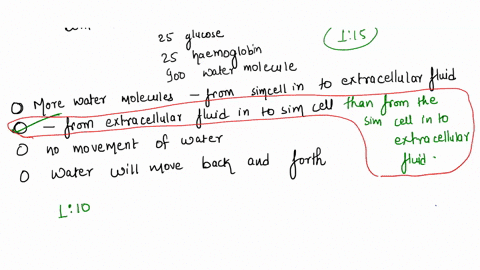 25 glucose
25 haemoglobin
900 water molecule
1:15
O More water molecules - from simcell in to extracellular fluid
O - from extracellular fluid in to sim cell than from the sim cell in to extracellular fluid.
O no movement of water
O Water will move back and forth
1:10